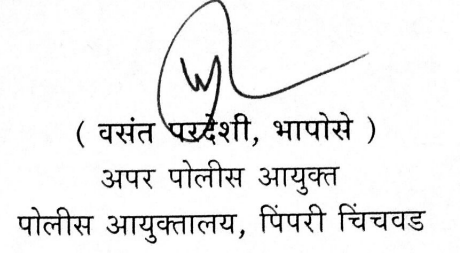 ( वसंत परदेशी, भापोसे )
अपर पोलीस आयुक्त
पोलीस आयुक्तालय, पिंपरी चिंचवड